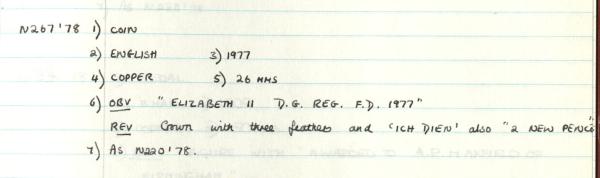 N267'78 1) COIN
2) ENGLISH 3) 1977
4) COPPER 5) 26 MMS
6) OBV "ELIZABETH II D.G. REG. F.D. 1977"
REV Crown with three feathers and 'ICH DIEN' also "2 NEW PENCE
7) AS N220'78.